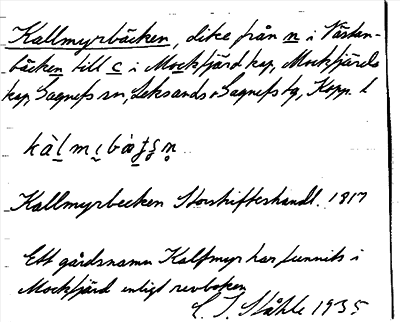 Kallmyrbäcken, dike från n i Nästan-
bäcken till c i Mockfjärd kap, Mockfjärds
kap, Gagnefs sn, Leksands o Gagnefs tg, Kopp. l
Kallmyrbecken Storskifteshandl. 1817
Ett gårdsnamn Kallmyr har funnits i
Mockfjärd enligt revboken
C. I. Ståhle 1935